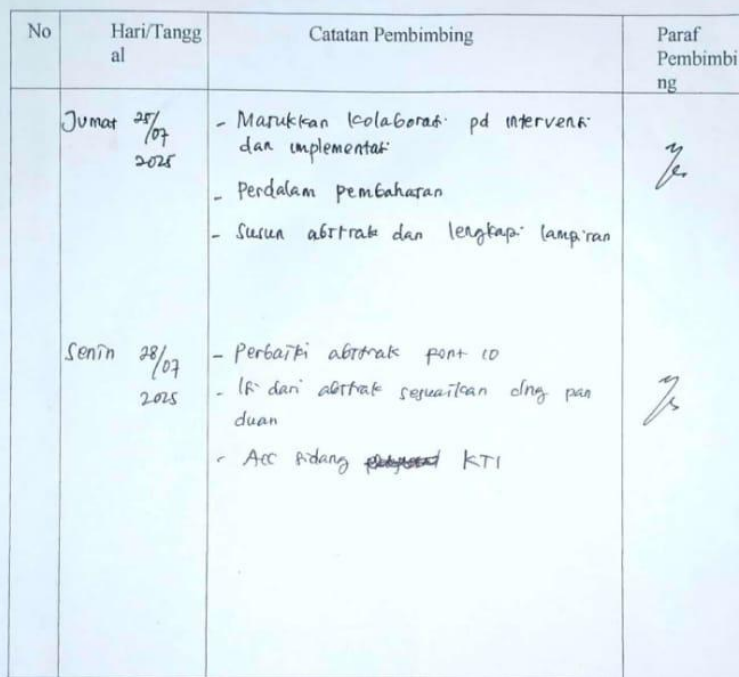 No Hari/Tangg Catatan Pembimbing Paraf
al Pembimbi
ng
Jumat 25/07 - Masukkan kolaborasi pd intervensi
2025 dan implementasi
- Perdalam pembahasan
- Susun abstrak dan lengkapi lampiran
Senin 28/07 - Perbaiki abstrak font 10
2025 - Isi dari abstrak sesuaikan dng pan
duan
- Acc sidang KTI